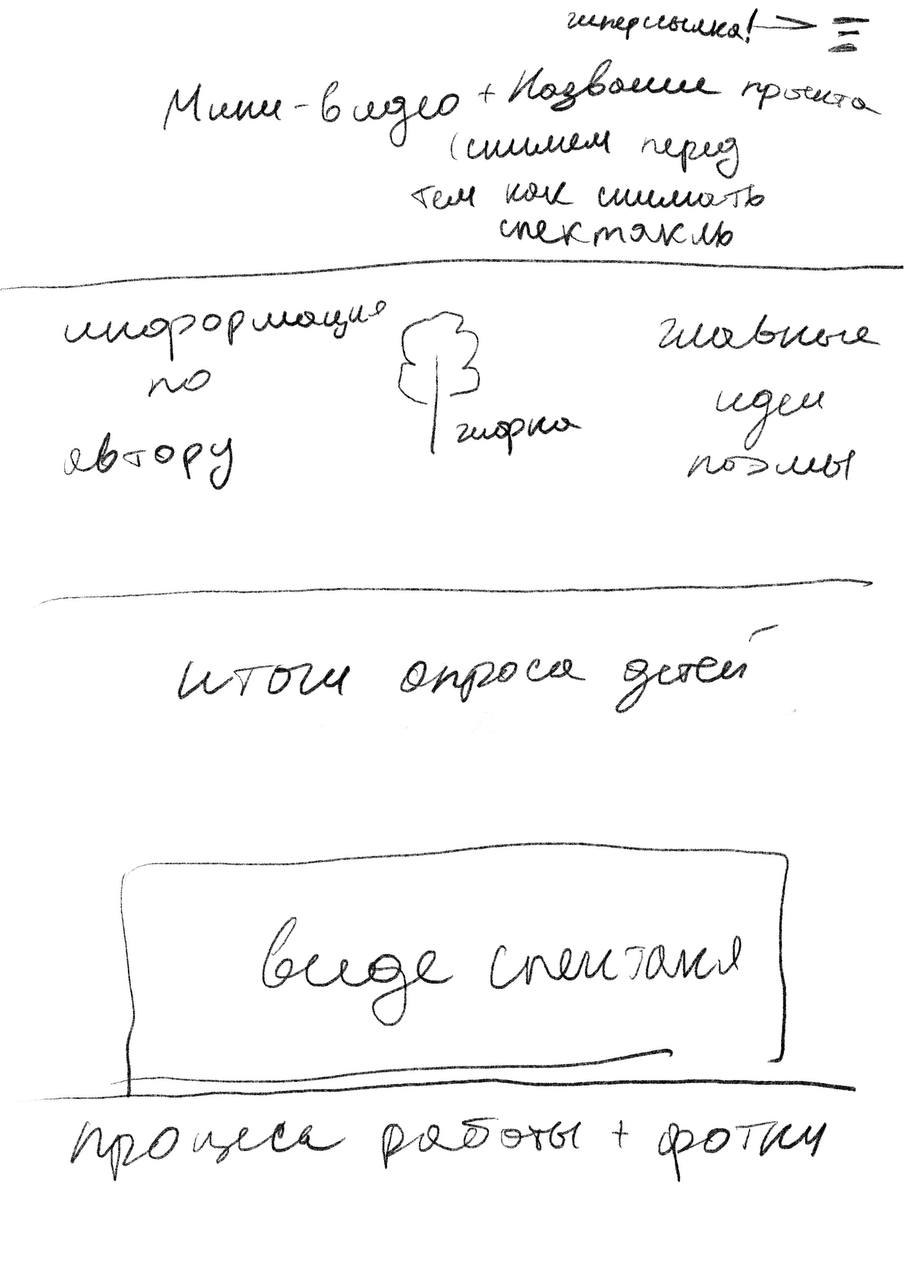 гиперссылка!
Мини-видео + Название проекта
(снимем перед
тем как снимать
спектакль
информация
по
автору
главные
идеи
поэмы
итоги опроса детей
виде спектакля
процесса работы + фотки